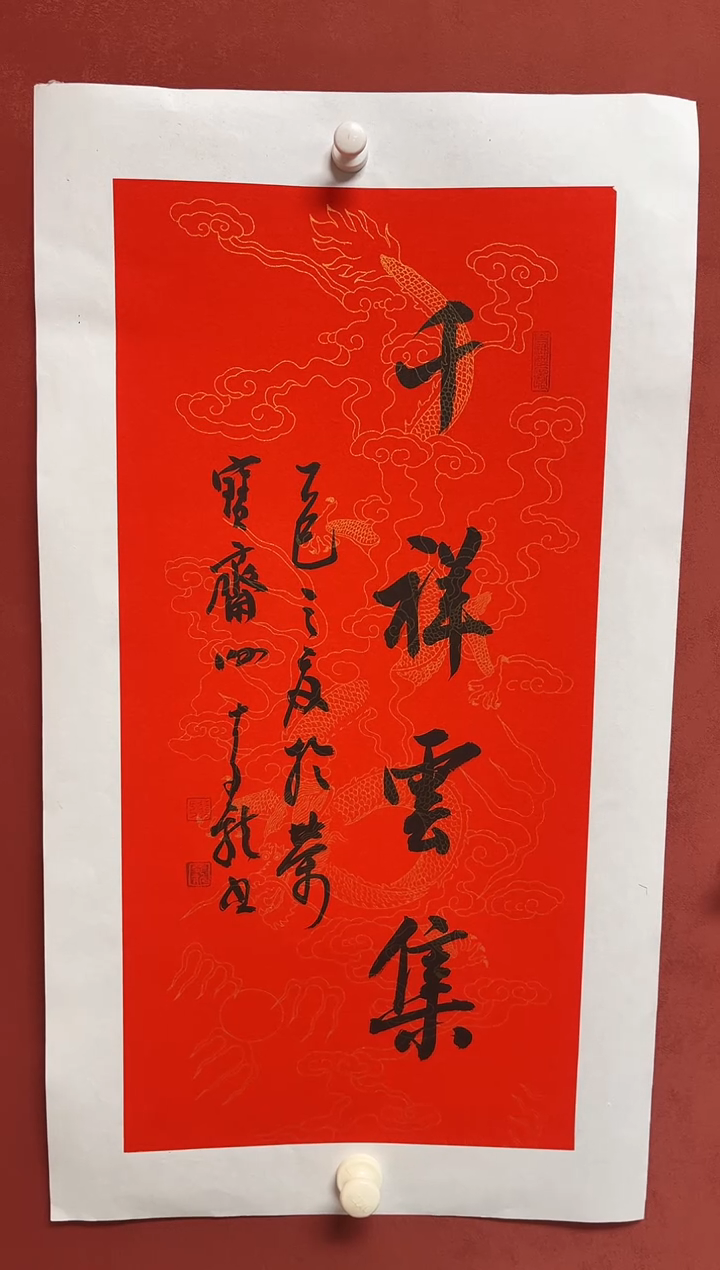 千祥雲集
乙巳之夏於榮
寶齋
龍書